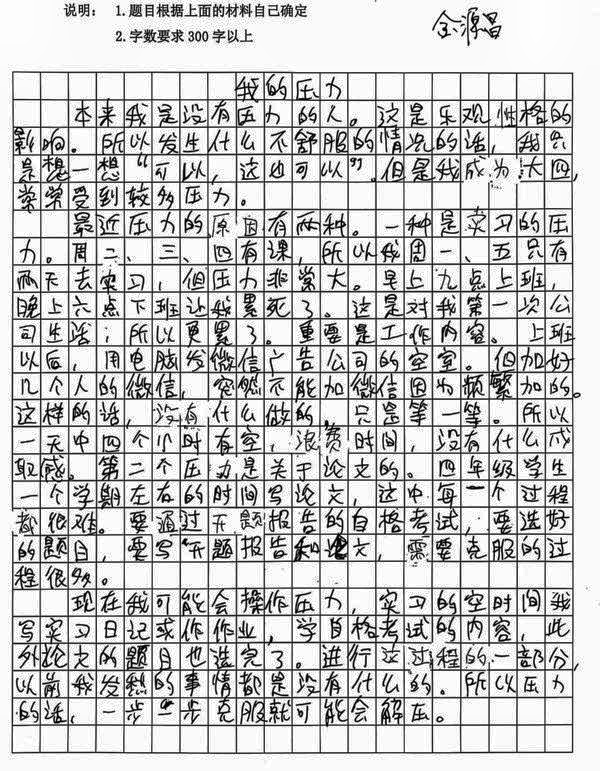 说明: 1.题目根据上面的材料自己确定
2.字数要求300字以上
金源昌
我的压力
本来我是没有压力的人。这是乐观性格的
影响。所以发生什么不舒服的情况的话,我只
是想一想“可以,这也可以”。但是我成为大四,
常常受到较多压力。
最近压力的原因有两种。一种是实习的压
力。周二、三、四有课,所以我周一、五只有
两天去实习,但压力非常大。早上九点上班,
晚上六点下班让我累死了。这是对我第一次公
司生活;所以更累了。重要是工作内容。上班
以后,用电脑发微信广告公司的空室。但加好
几个人的微信,突然不能加微信因为频繁加的。
这样的话,没有什么做的,只是等一等。所以
一天中四个小时有空,浪费时间,没有什么成
取感。第二个压力是关于论文的。四年级学生
一个学期左右的时间写论文,这中每一个过程
都很难。要通过开题报告的自格考试,要选好
的题目,要写开题报告和论文,需要克服的过
程很多。
现在我可能会操作压力,实习的空时间我
写实习日记或作作业,学自格考试的内容,此
外论文的题目也选完了。进行这过程的一部分,
以前我发愁的事情都是没有什么的。所以压力
的话,一步一步克服就可能会解压。